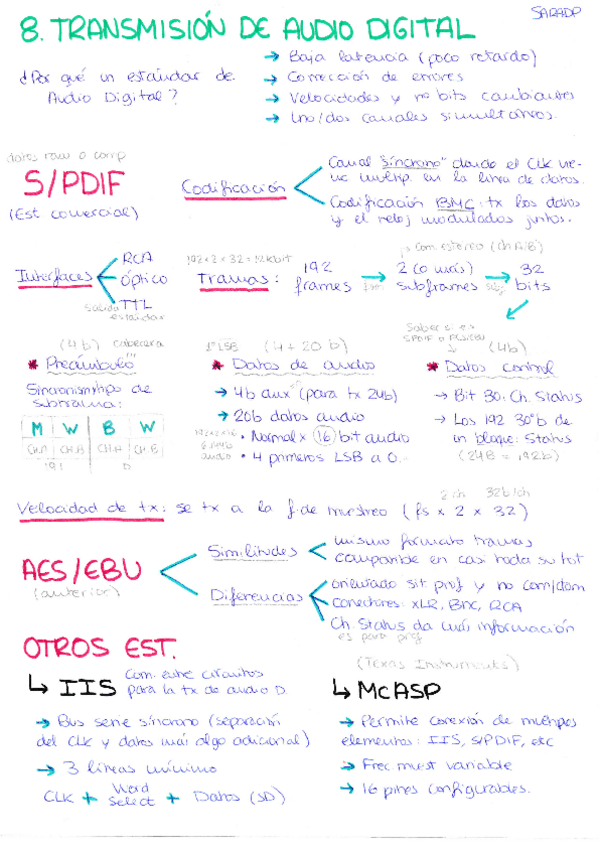 SARADP
8. TRANSMISIÓN DE AUDIO DIGITAL
¿Por qué un estándar de
Audio Digital?
→ Baja latencia (poco retardo)
→ Corrección de errores
→ Velocidades y nº bits cambiantes
→ Uno/dos canales simultáneos.
datos raw o comp
S/PDIF
(Est comercial)
Codificación
Canal "síncrono" dando el CLK
multip. en la línea de datos.
Codificación BMC: tx los datos
y el reloj modulados juntos.
Interfaces
RCA
óptico
TTL
salida estándar
192 x 2 x 32 = 12kbit
Tramas:
192 frames
→
2 (o más) subframes
→
32 bits
com. estereo (ch A/B)
(4b) cabecera
* Preámbulo
Sincronismo y tipo de
subtrama:
M W B W
CH.A CH.B CH.A CH.B
191 0
1º LSB (4 + 20 b)
* Datos de audio
→ 4b aux (para tx 24b)
→ 20b datos audio
• Normal x 16 bit audio
• 4 primeros LSB a 0.
audio
Saber si es
S/PDIF o AES/EBU
(4b)
* Datos control
→ Bit 30: Ch. Status
→ Los 192 30ºb de
un bloque: Status
(24B = 192b)
2 ch 32b/ch
Velocidad de tx: se tx a la f. de muestreo (fs x 2 x 32)
AES/EBU
(anterior)
Similitudes
mismo formato tramas
compatible en casi toda su tot
Diferencias
orientado sit prof y no com/dom
Conectores: XLR, BNC, RCA
Ch. Status da más información
es para prof
OTROS EST.
↳ IIS
Com. entre circuitos
para la tx de audio D.
→ Bus serie síncrono (separación
del CLK y datos más algo adicional)
→ 3 líneas mínimo
CLK + Word Select + Datos (SD)
(Texas Instruments)
↳ McASP
→ Permite conexión de múltiples
elementos: IIS, S/PDIF, etc
→ Frec. muest variable
→ 16 pines configurables.